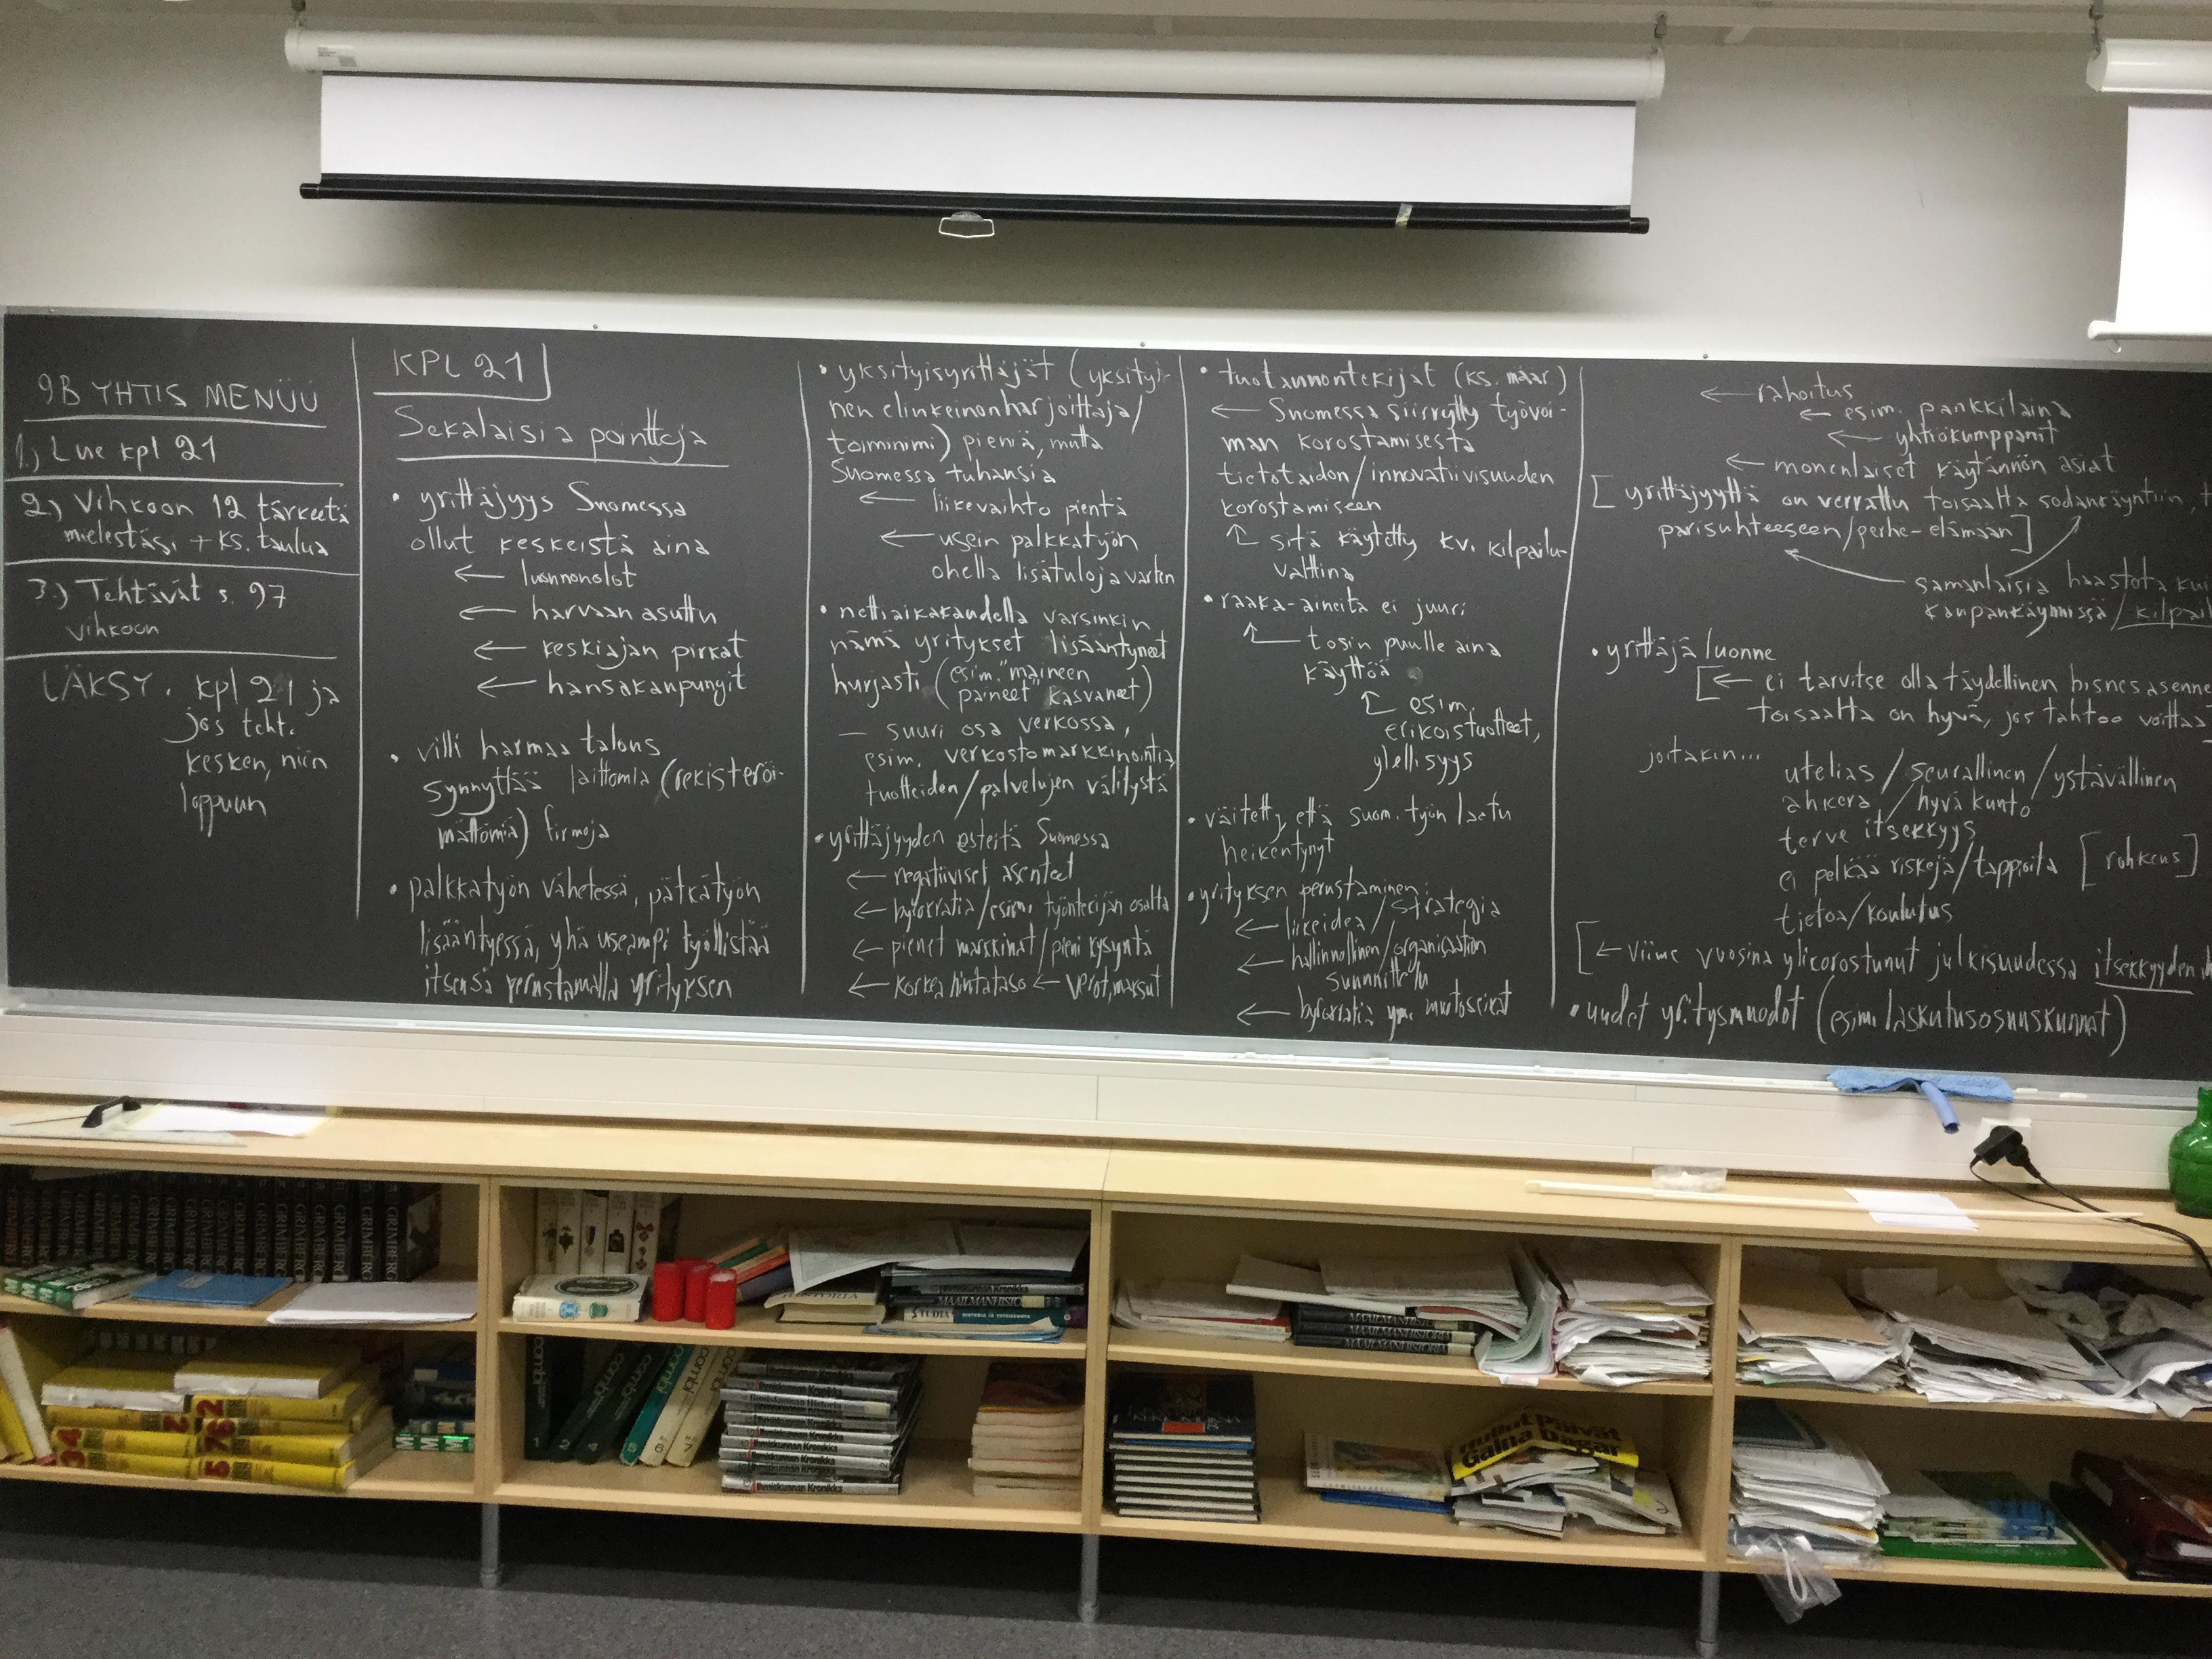 9B YHTIS MENÜÜ
1.) Lue kpl 21
2.) Vihkoon 12 tärkeetä
mielestäsi + ks. taulua
3.) Tehtävät s. 97
vihkoon
LÄKSY. kpl 21 ja
jos teht.
kesken, niin
loppuun
KPL 21
Sekalaisia pointteja
• yrittäjyys Suomessa
ollut keskeistä aina
← luonnonolot
← harvaan asuttu
← keskiajan pirkat
← hansakaupungit
• villi harmaa talous
synnyttää laittomia (rekisteröi-
mättömiä) firmoja
• palkkatyön vähetessä, pätkätyön
lisääntyessä, yhä useampi työllistää
itsensä perustamalla yrityksen
• yksityisyrittäjät (yksityi-
nen elinkeinonharjoittaja/
toiminimi) pieniä, mutta
Suomessa tuhansia
← liikevaihto pientä
← usein palkkatyön
ohella lisätuloja varten
• nettiaikakaudella varsinkin
nämä yritykset lisääntyneet
hurjasti (esim. "maineen
paineet" kasvaneet)
— suuri osa verkossa,
esim. verkostomarkkinointia
tuotteiden/palvelujen välitystä
• yrittäjyyden esteitä Suomessa
← negatiiviset asenteet
← byrokratia/esim. työntekijän osalta
← pienet markkinat/pieni kysyntä
← korkea hintataso ← verot, maksut
• tuotannontekijät (ks. määr.)
← Suomessa siirrytty työvoi-
man korostamisesta
tietotaidon/innovatiivisuuden
korostamiseen
↑ sitä käytetty kv. kilpailu-
valttina
• raaka-aineita ei juuri
↑ tosin puulle aina
käyttöä
↑ esim.
erikoistuotteet,
ylellisyys
• väitetty, että suom. työn laatu
heikentynyt
• yrityksen perustaminen:
← liikeidea/strategia
← hallinnollinen/organisaation
suunnittelu
← byrokratia ym. muotoseikat
← rahoitus
← esim. pankkilaina
← yhtiökumppanit
← monenlaiset käytännön asiat
[yrittäjyyttä on verrattu toisaalta sodankäyntiin,
parisuhteeseen/perhe-elämään]
samanlaisia haasteita kuin
kaupankäynnissä/kilpail
• yrittäjäluonne
[← ei tarvitse olla täydellinen bisnesasenne
toisaalta on hyvä, jos tahtoo voittaa]
joitakin...
utelias/seurallinen/ystävällinen
ahkera/hyvä kunto
terve itsekkyys
ei pelkää riskejä/tappioita [rohkeus]
tietoa/koulutus
[← viime vuosina ylikorostunut julkisuudessa itsekkyyden
• uudet yritysmuodot (esim. laskutusosuuskunnat)
GRIMBERG
GRIMBERG
GRIMBERG
GRIMBERG
GRIMBERG
GRIMBERG
GRIMBERG
Ihmiskunnan Kronikka
MAAILMANHISTORIA
STUDIA
HISTORIA JA YHTEISKUNTA
MAAILMANHISTORIA
MAAILMANHISTORIA
MAAILMANHISTORIA
combi
combi
combi
combi
combi
1 2 4 5 6 7
Ihmiskunnan Kronikka
Ihmiskunnan Kronikka
Ihmiskunnan Kronikka
Ihmiskunnan Kronikka
Hullut Päivät
Galna Dagar